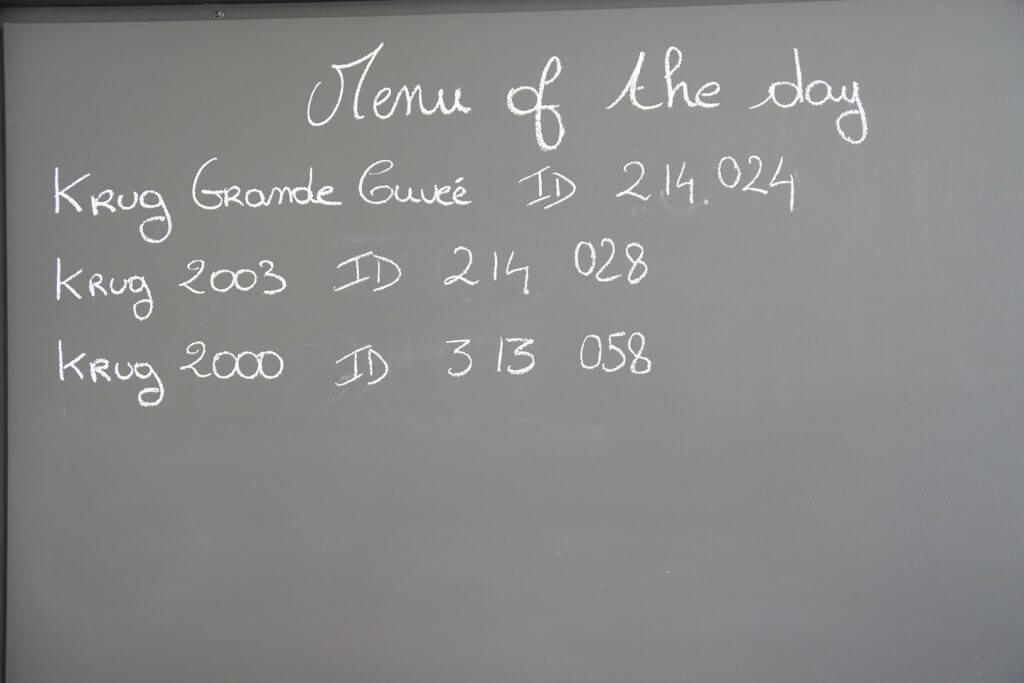 Menu of the day
Krug Grande Cuvée ID 214.024
Krug 2003 ID 214 028
Krug 2000 ID 313 058